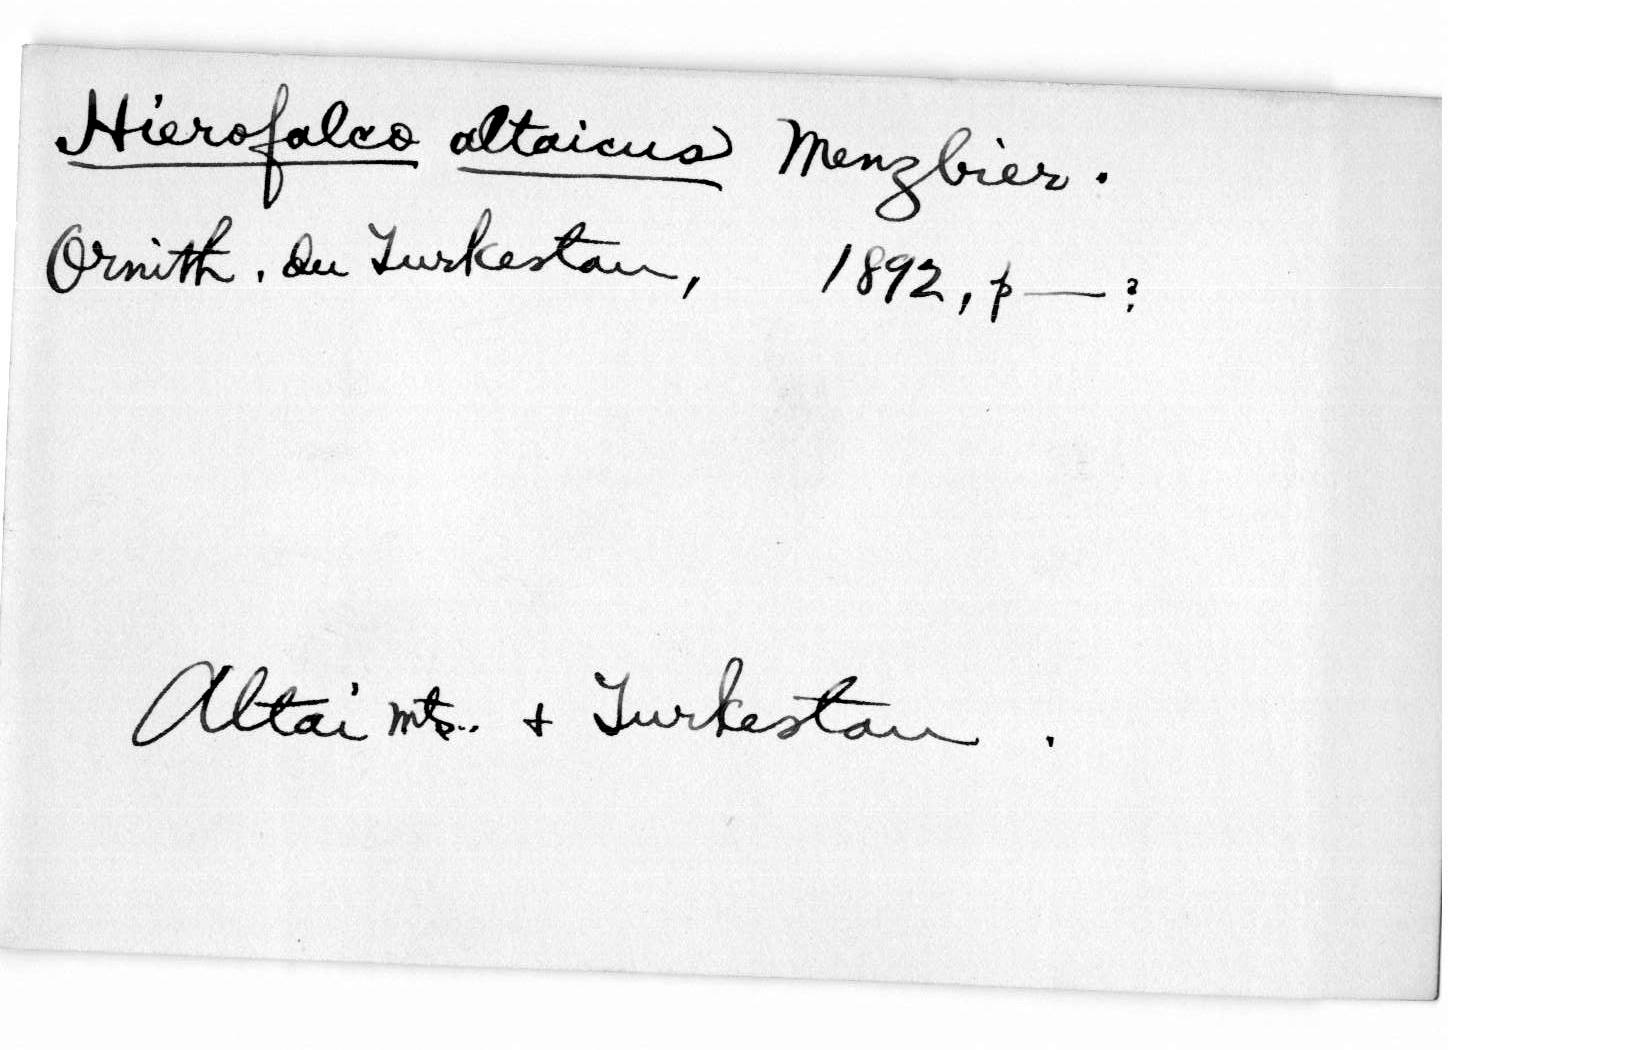 Hierofalco altaicus Menzbier.
Ornith. du Turkestan, 1892, p — ?
Altai mts. + Turkestan.